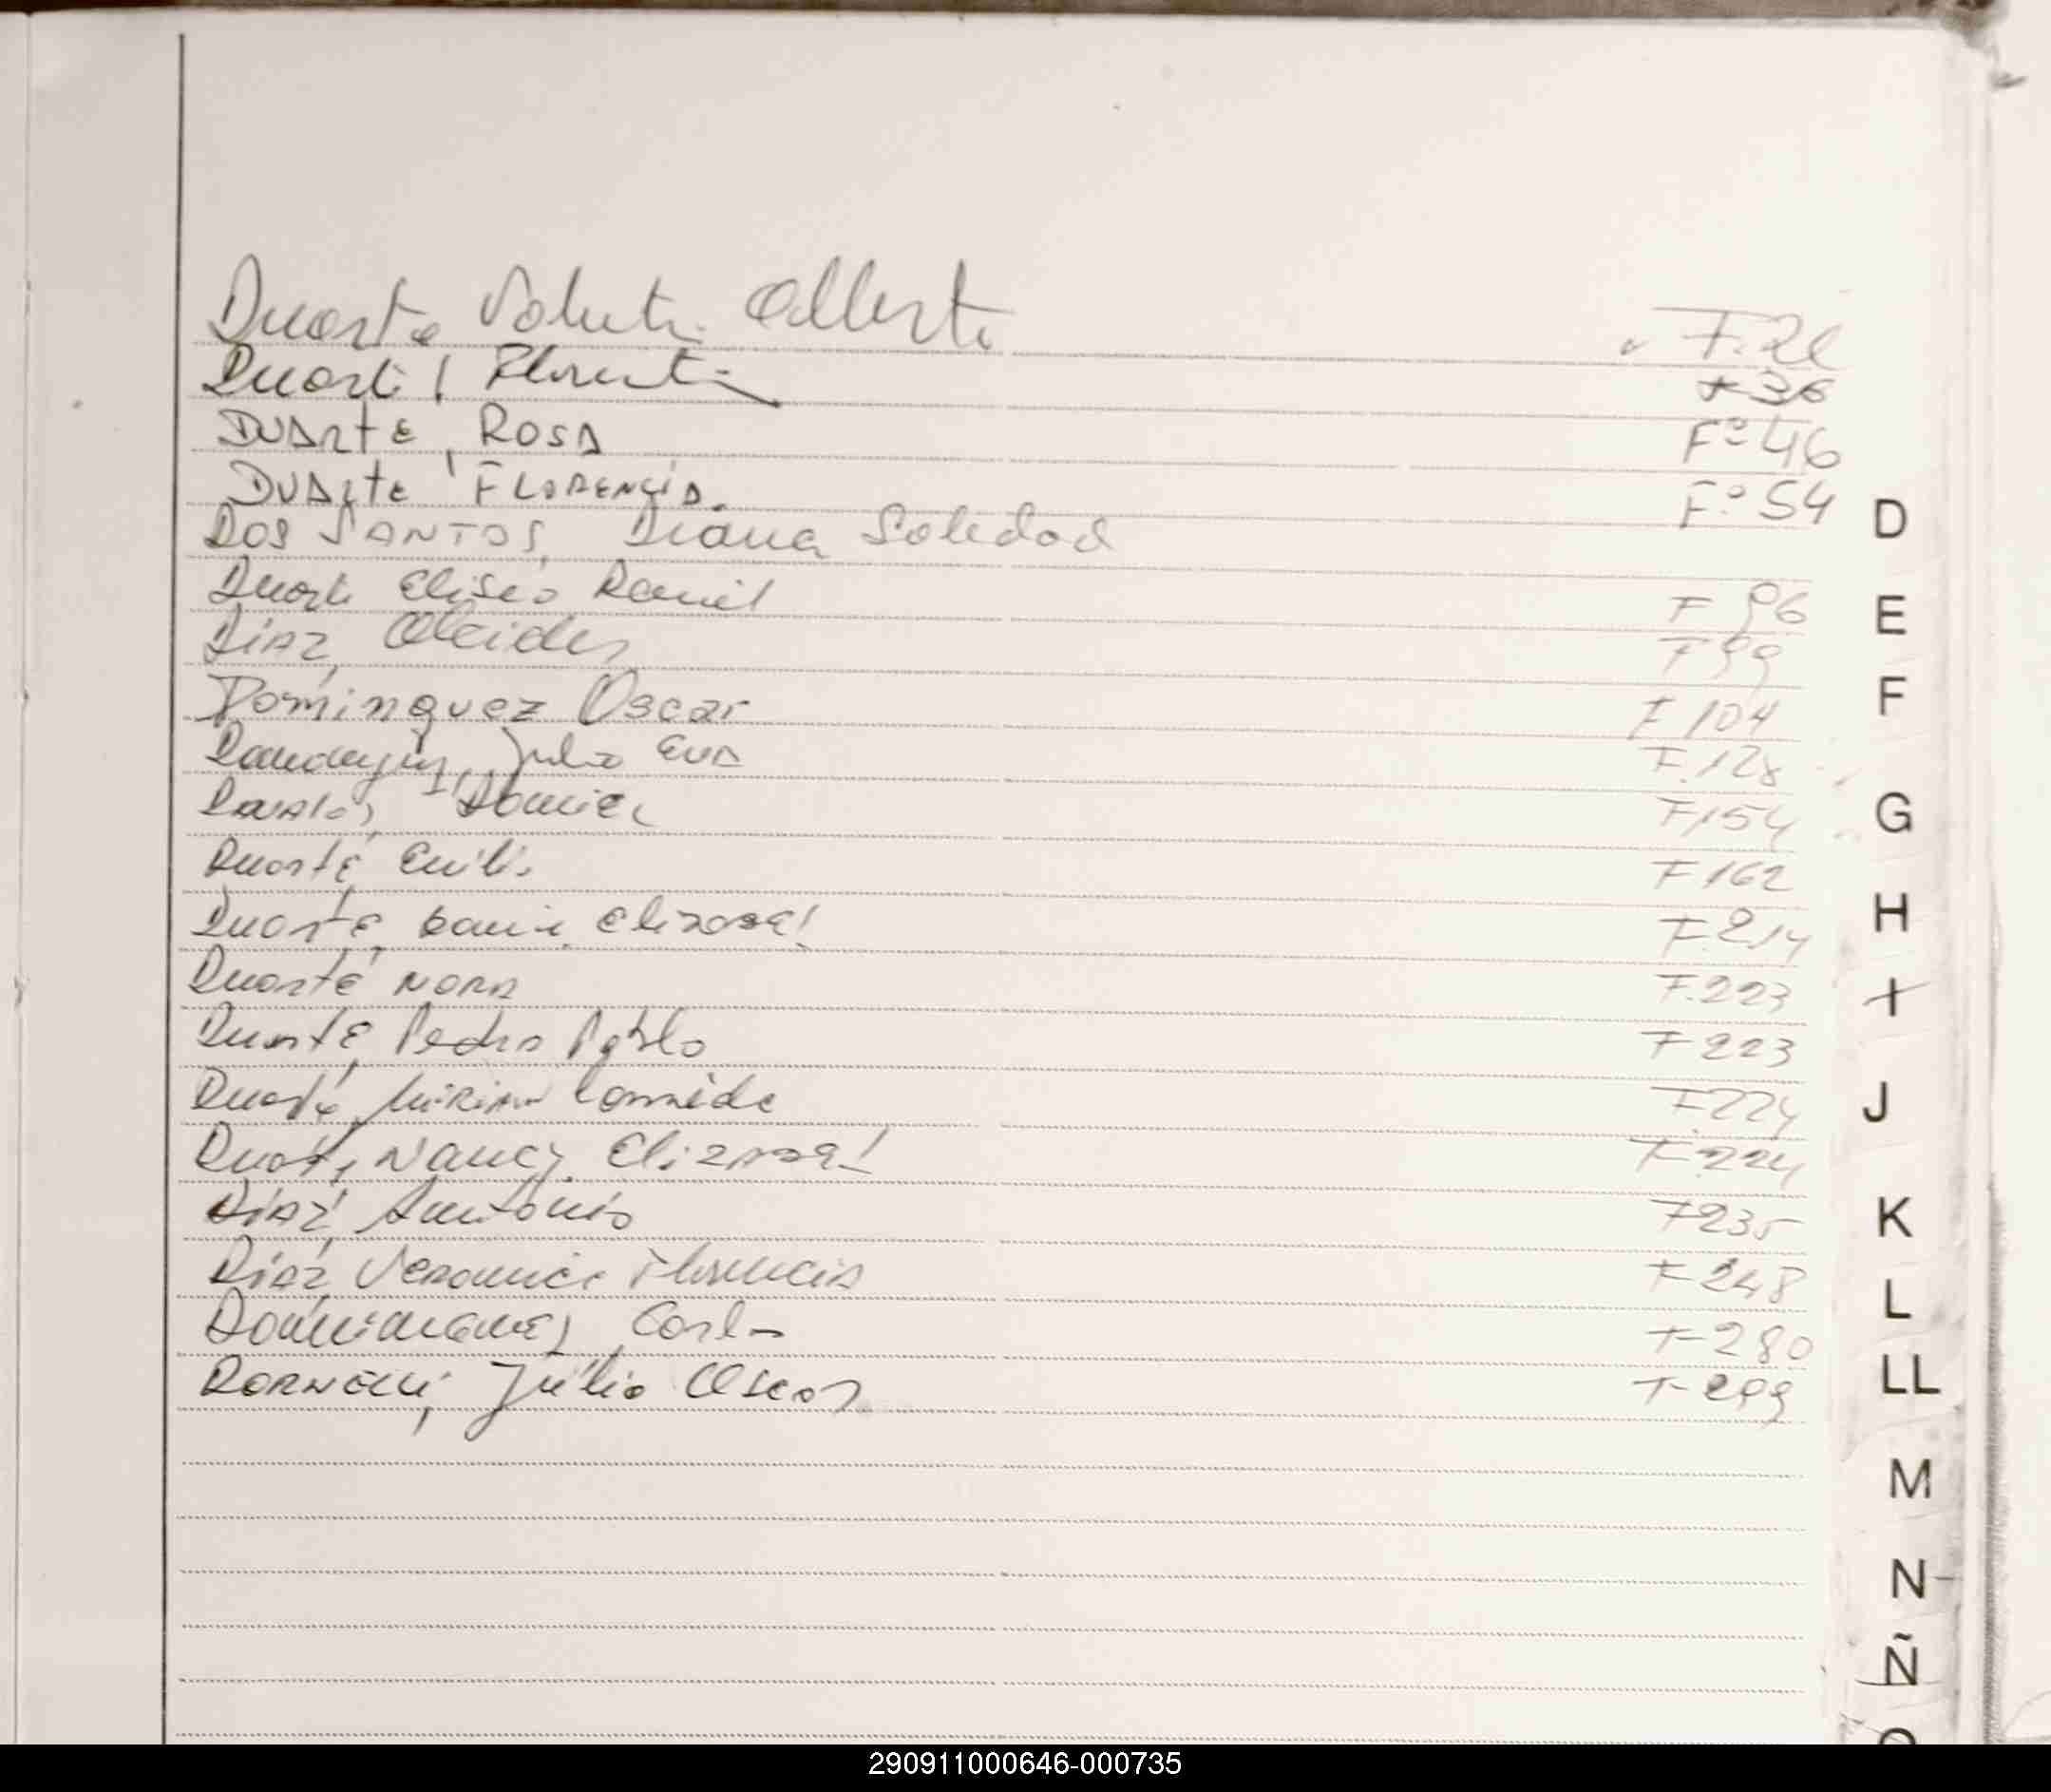 Duarte Alberto F.21
Duarte, Florentin 36
DUARTE, ROSA Fº 46
DUARTE FLORENCIA. Fº 54
DOS SANTOS, Diana Soledad
Duarte Eliseo Daniel F 96
DIAZ, Alcides F 99
Dominguez Oscar F 104
Julia EVA F.128
Davalos, Daniel F.154
Duarte, Emilio F 162
Duarte, Elizabet F.214
Duarte NORA F.223
Duarte, Pedro Pablo F 223
Duarte, MIRIAM F.224
Duarte, Nancy Elizabet F.224
DIAZ, Antonio F 235
Diaz, Veronica Florencia F 248
Carlos F 280
DORNELLI, Julio Oscar F 299
D
E
F
G
H
I
J
K
L
LL
M
N
Ñ
290911000646-000735